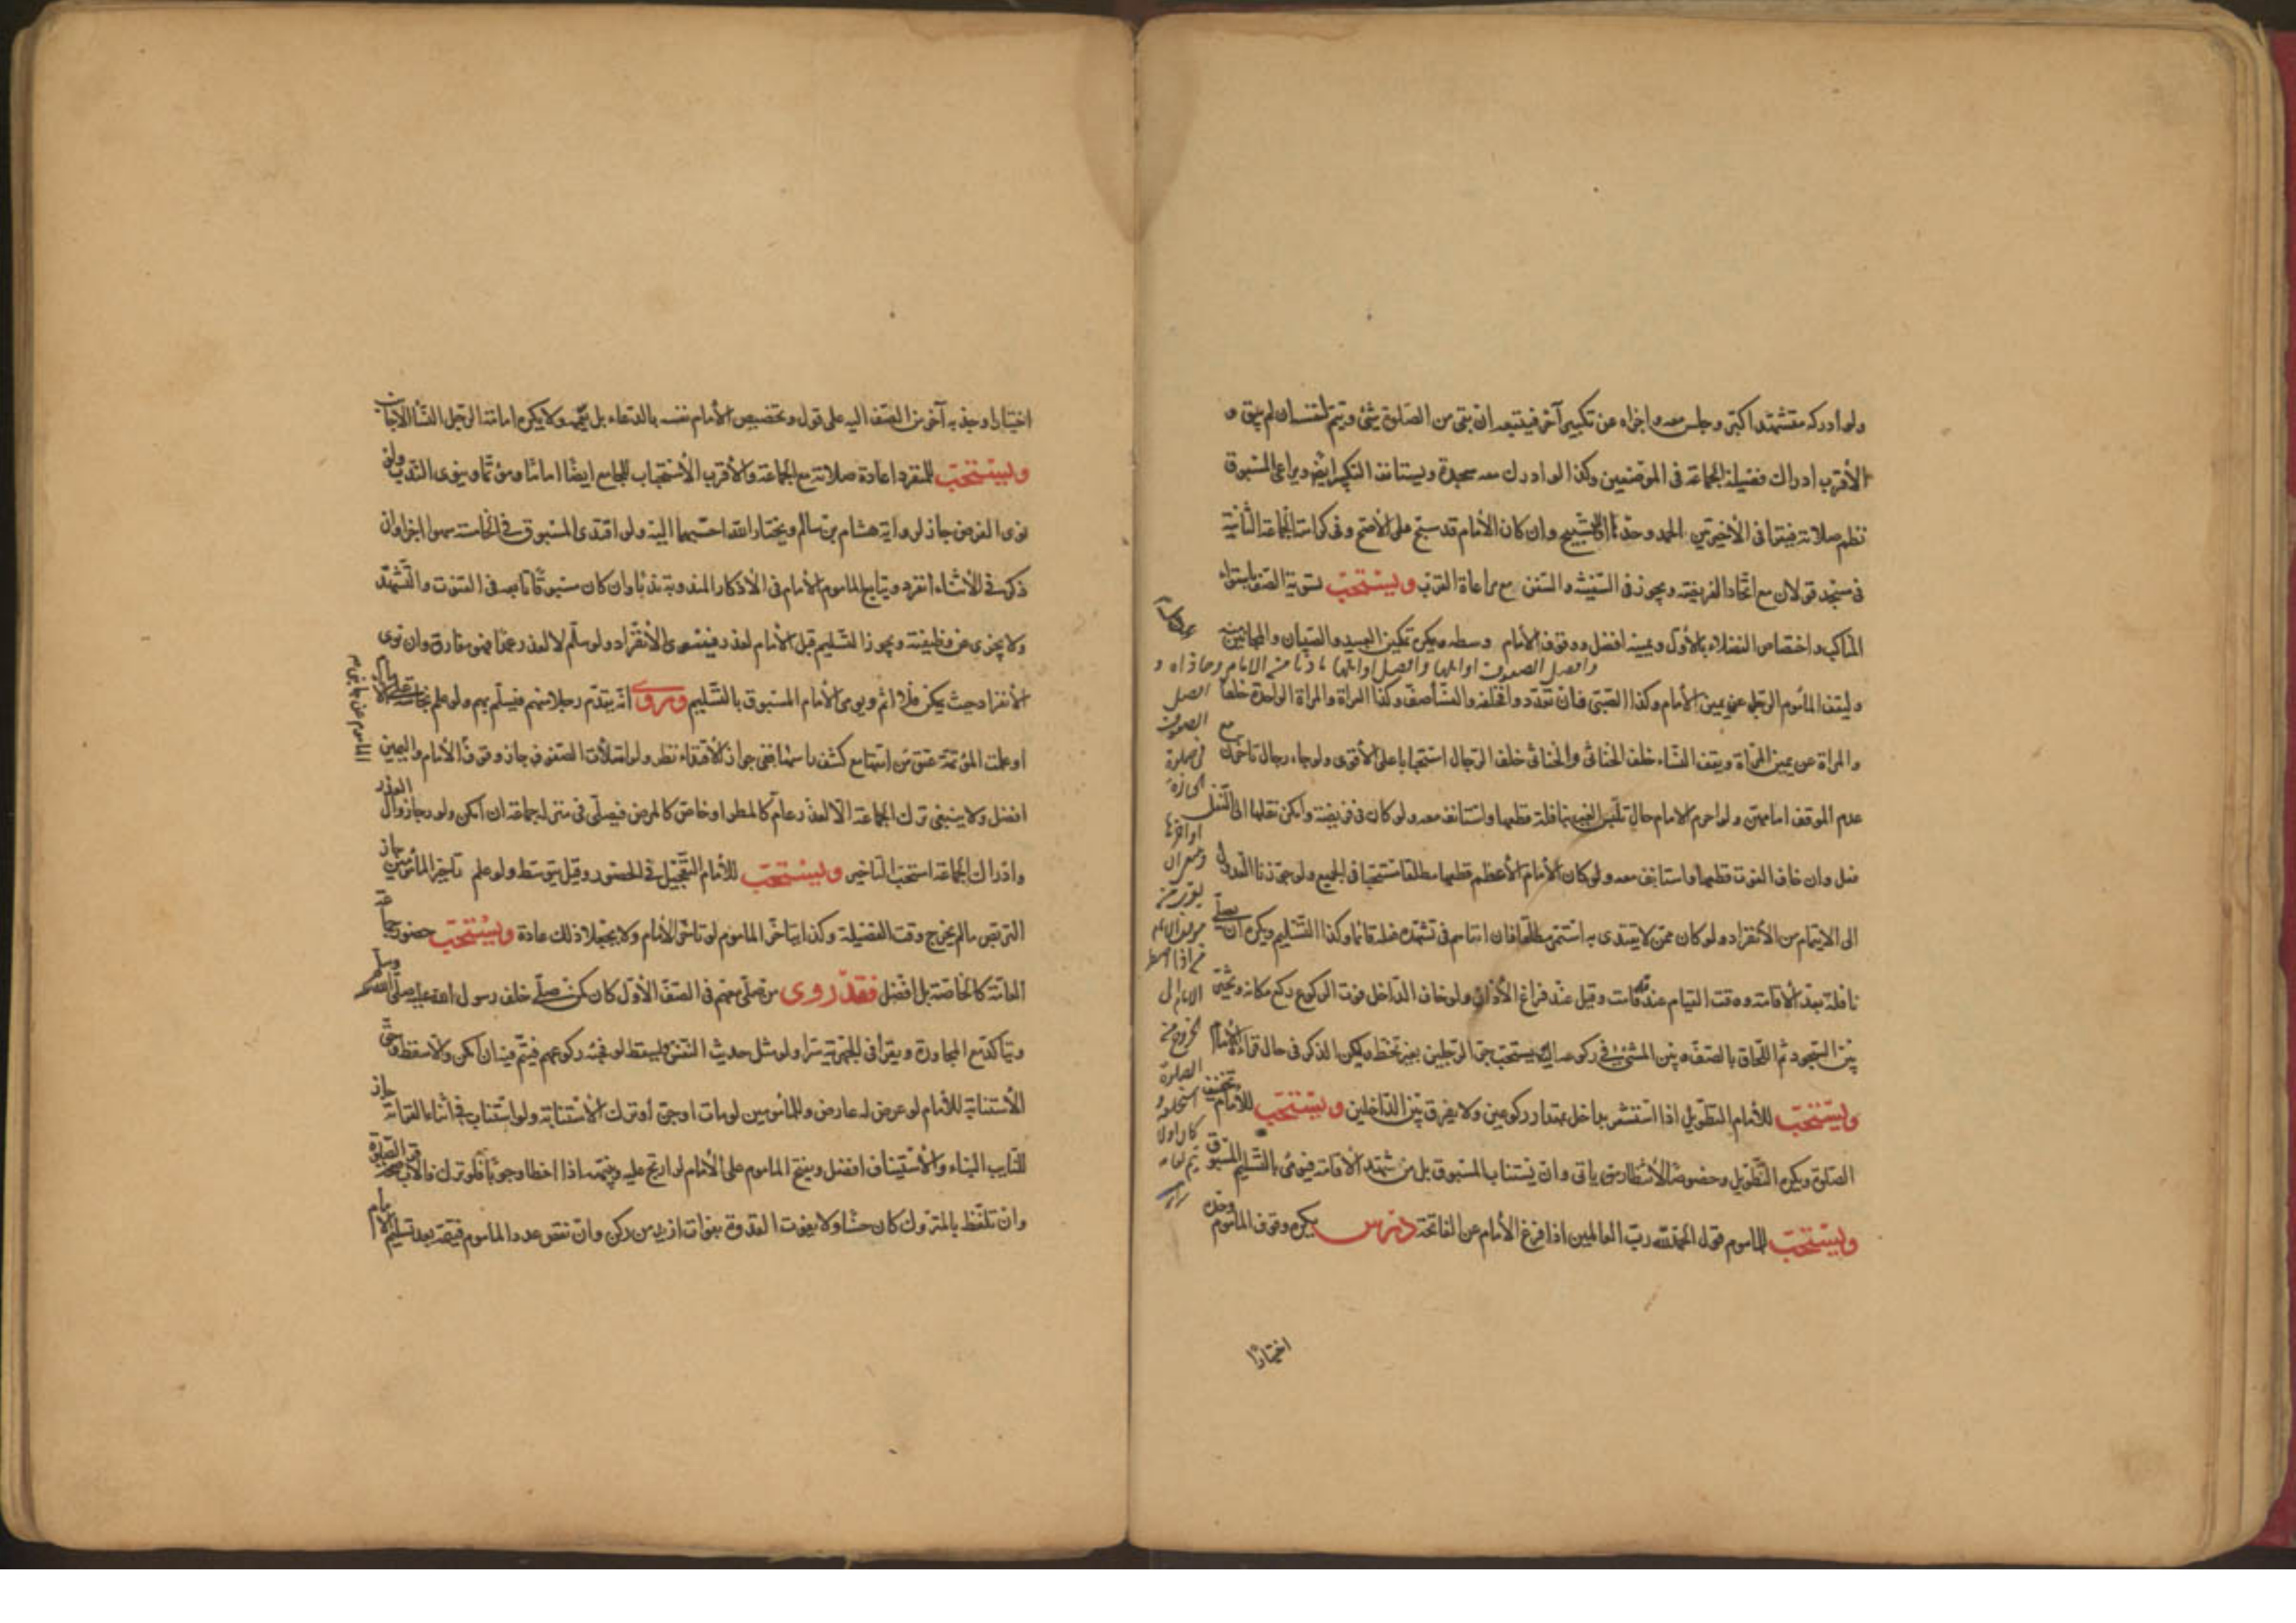 ولو ادركه متشهدا كبّر وجلس معه واجزاه عن تكبير آخر فيتبعه ان بقي من الصلوة شئ ويتم لنفسه ان لم يبق و
الأقرب ادراك فضيلة الجماعة في الموضعين وكذا لو ادرك معه سجدة ويستانف التكبير ايضا ويراعى المسبوق
نظم صلاته فيقرا في الأخيرتين الحمد وحدها او التسبيح وان كان الأمام قد سبح على الأصح وفى كراهة الجماعة الثانية
فى مسجد قولان مع اتحاد الفريضة ويجوز فى السفينة والسفن مع مراعاة القرب ويستحب تسوية الصف باستواء
المناكب واختصاص الفضلاء بالأول ويمينه افضل ووقوف الأمام وسطه ويكره تمكين العبيد والصبيان والمجانين منه
وافضل الصفوف اوائلها وافضل اوائلها ما دنا من الامام وحاذاه و
وليقف المأموم الرجل عن يمين الأمام وكذا الصبى فان تعدد وا فخلفه والنسا صف وكذا المراة والمراة الواحدة خلفه
افضل الصفوف
والمراة عن يمين المراة ويقف النساء خلف الخناثى والخناثى خلف الرجال استحبابا على الأقوى ولو جاء رجال تاخرن مع
فى صلوة الجنازة
عدم الموقف امامهن ولو احرم الامام حال تلبس الغير بنافلة قطعها واستانف معه ولو كان فى فريضة وامكن نقلها الى النفل
اواخرها
فعل وان خاف الفوت قطعها واستانف معه ولو كان الأمام الأعظم قطعها مطلقا مستحبا في الجميع ولو جوزنا العدول
الى الايتمام من الأنفراد ولو كان ممن لا يقتدى به استمر مطلقا فان اتاه فى تشهده فعله قائما وكذا التسليم ويكره ان يصلى
نافلة بعد الأقامة ووقت القيام عند قد قامت وقيل عند فراغ الأذان ولو خاف الداخل فوت الركوع ركع مكانه ويمشى
بين السجود ثم اللحاق بالصف وبين المشى فى ركوعه الى يستحب جر الرجلين بغير تخط ويكره الذكر فى حال قراءة الأمام
ويستحب للأمام التطويل اذا استشعر بداخل بمقدار ركوعين ولا يفرق بين الداخلين ويستحب للأمام تخفيف
الصلوة ويكره التطويل وخصوصا لأنتظار من ياتى وان يستناب المسبوق بل من شهد الأقامة فيومى بالتسليم المسبوق
ويستحب للماموم قول الحمد لله رب العالمين اذا فرغ الأمام من الفاتحة درس يكره وقوف الماموم وحده
اختيارا
اختيارا وجذبه آخر من الصف اليه على قول وتخصيص الأمام نفسه بالدعاء بل يعمه ولا يكره امامة الرجل النسا الاجانب
ويستحب للمنفرد اعادة صلاته مع الجماعة والأقرب الأستحباب للجامع ايضا اماما ومؤتما وينوى الندب ولو
نوى الفرض جاز لرواية هشام بن سالم ويختار الله احبهما اليه ولو اقتدى المسبوق فى الخامسة سهوا اجزا وان
ذكر فى الأثناء انفرد ويتابع الماموم الأمام فى الأذكار المندوبة ندبا وان كان مسبوقا تابعه فى القنوت والتشهد
ولا يجزى عن وظيفته ويجوز التسليم قبل الأمام لعذر فينوى الأنفراد ولو سلم لا لعذر عمدا فهو مفارق وان نوى
الأنفراد حيث يمكن فلا اثم ويومى الأمام المسبوق بالتسليم وروى انه يقدم رجلا منهم فيسلم بهم ولو علم نجاسة على الامام
الماموم عن جانبى
او علمت المؤتمة عتق من امتها مع كشف راسها ففى جواز الأقتداء نظر ولو امتلأت الصفوف جاز وقوف الأمام واليمين
افضل ولا ينبغى ترك الجماعة الا لعذر عام كالمطر او خاص كالمرض فيصلى فى منزله جماعة ان امكن ولو رجا زوال العذر
وادراك الجماعة استحب التاخير ويستحب للأمام التعجيل فى الحضور وقيل يتوسط ولو علم تاخير المأمومين جاز
التربص مالم يخرج وقت الفضيلة وكذا يتاخر الماموم لو تاخر الأمام ولا يجعلا ذلك عادة ويستحب حضور جماعة
العامة كالخاصة بل افضل فقد روى من صلى معهم فى الصف الأول كان كمن صلى خلف رسول الله صلى الله عليه وسلم
ويتاكد مع المجاورة ويقرا فى الجهرية سرا ولو مثل حديث النفس ويسقط لو فجئه ركوعهم فيتم فيه ان امكن والا سقط ويجوز
الأستنابة للأمام لو عرض له عارض وللمأمومين لو مات او جن او ترك الأستنابة ولو استناب فى اثناء القراءة جاز
للنايب البناء والأستيناف افضل ويفتح الماموم على الأمام لو ارتج عليه وينبهه اذا اخطا وجوبا فلو ترك فالأقرب صحة الصلوة
وان تلفظ بالمتروك كان حسنا ولا يفوت القدوة بفوات ازيد من ركن وان نقص عدد الماموم فيتمه بعد تسليم الأمام